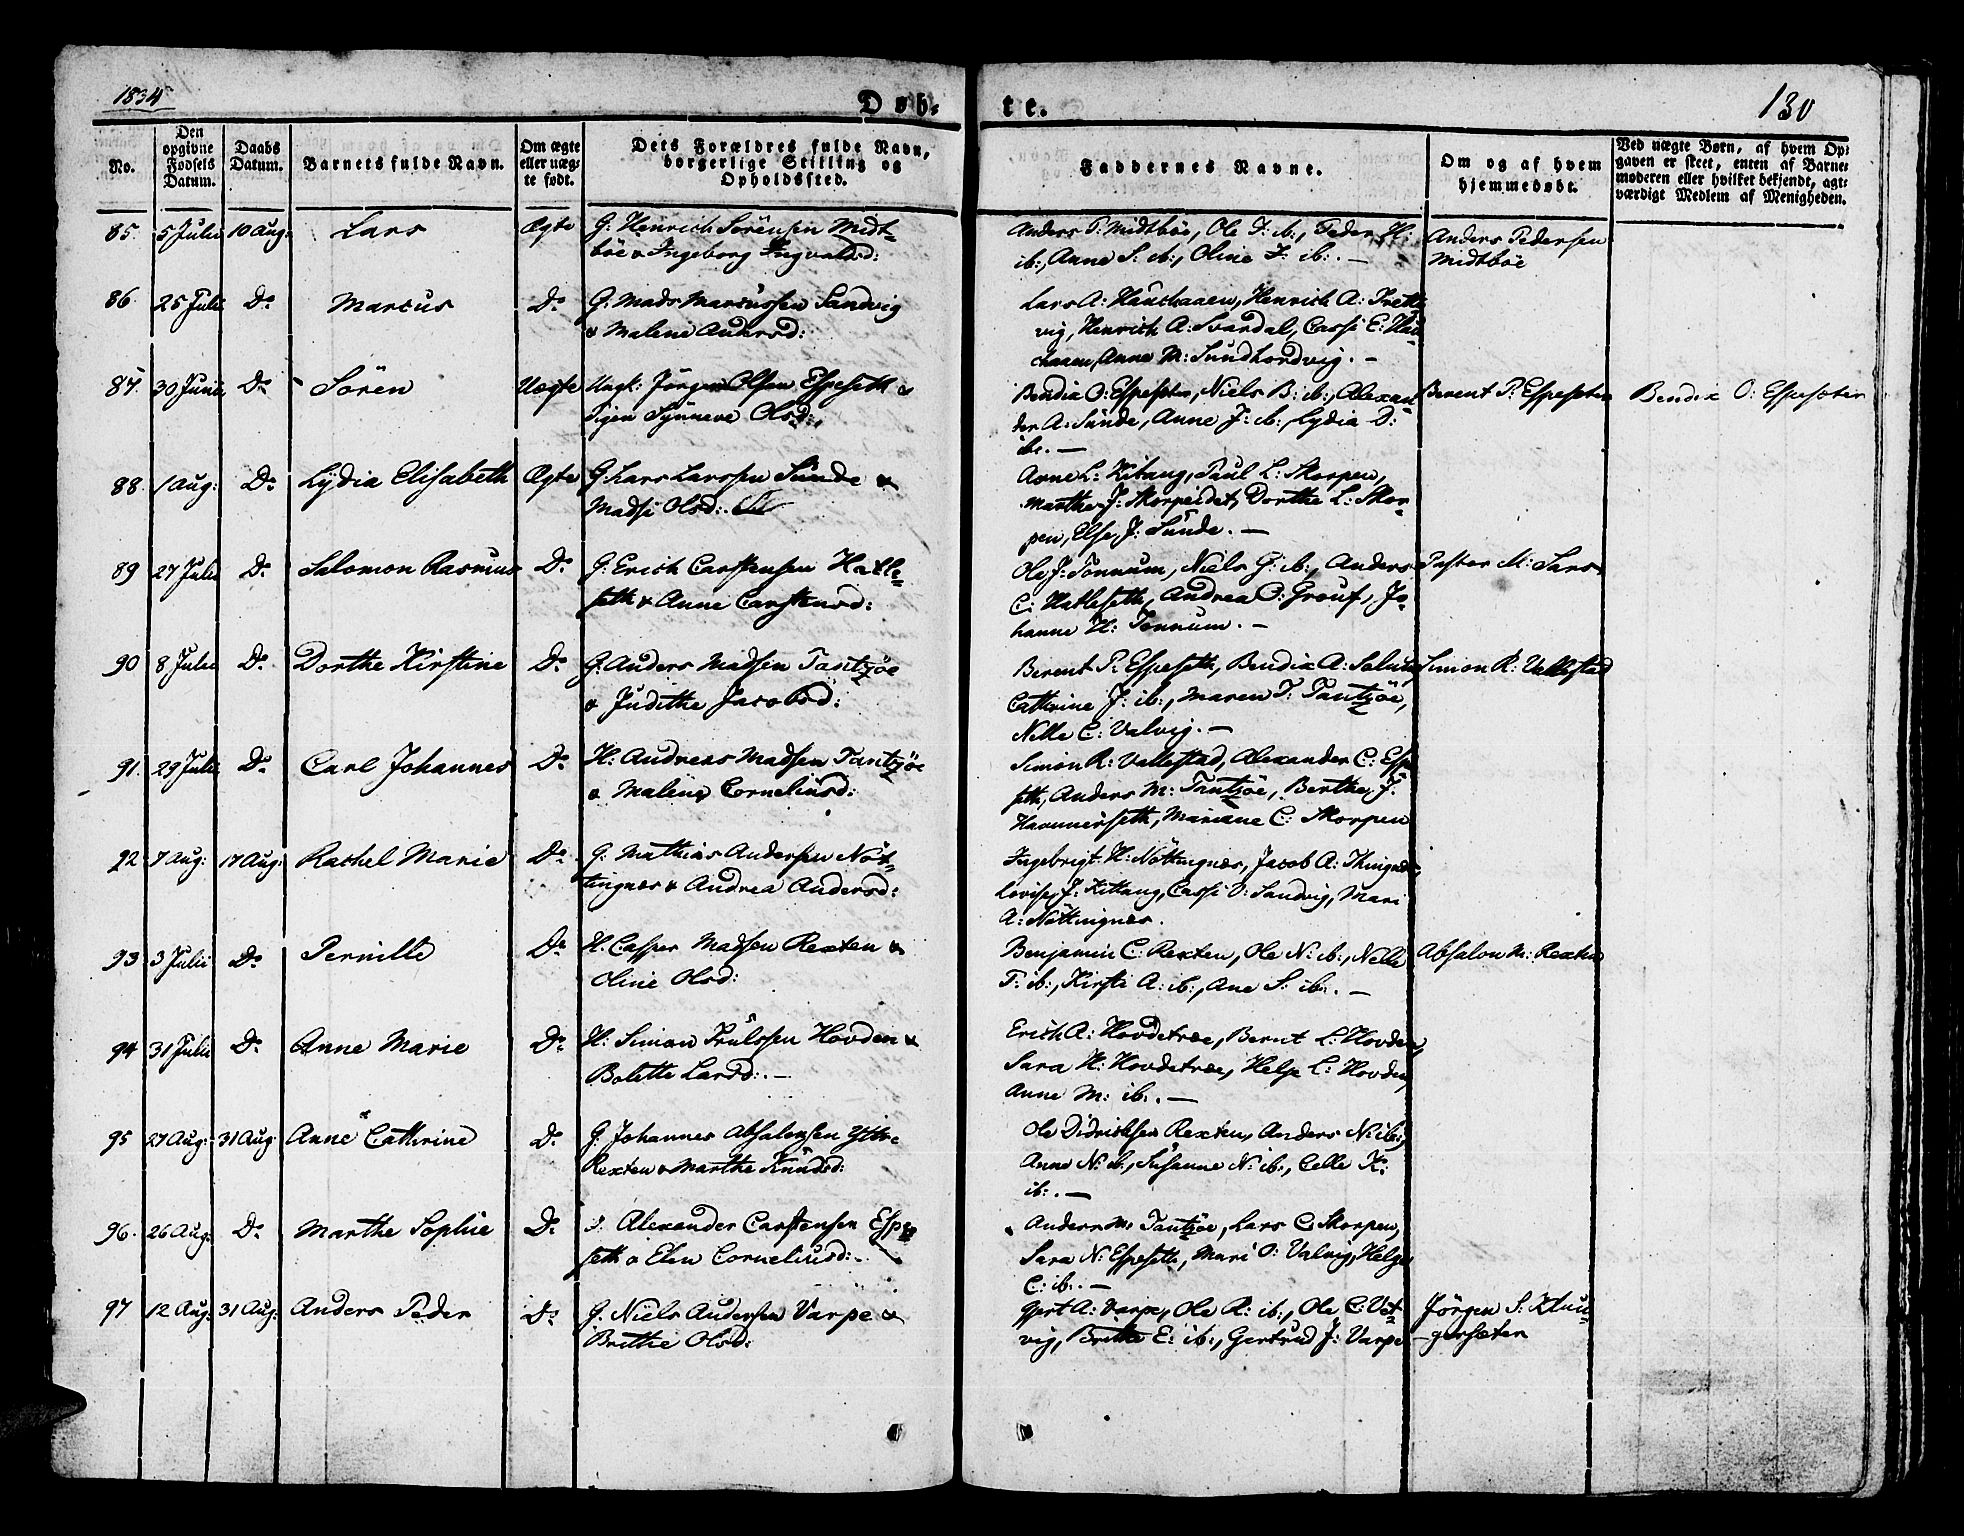 1834
Døb-
te.
130
No.
Den opgivne Fødsels Datum.
Daabs Datum.
Barnets fulde Navn.
Om ægte eller uæg- te født.
Dets Forældres fulde Navn, borgerlige Stilling og Opholdssted.
Faddernes Navne.
Om og af hvem hjemmedøbt.
Ved uægte Børn, af hvem Op- gaven er skeet, enten af Barne- moderen eller hvilket bekjendt, agt- værdigt Medlem af Menigheden.
85. 5 Julii 10 Aug: Lars Ægte G: Henrich Sörensen Midt-
böe & Ingeborg Ingvaldsd:
Anders P: Midtböe, Ole I: ib:, Peder H:
ib:, Anne S: ib:, Oline I: ib:. —
Anders Pedersen
Midtböe
86 25 Julii Do Marcus Do G: Mads Marcussen Sandvig
& Malene Andersd:
Lars A: Hauchaaen, Henrich A: Trette
vig, Henrich A: Svardal, Cassi E: Hau
chaaen, Anne M: Sundhordvig. —
87. 30 Junii Do Sören Uægte Ungk: Jörgen Olsen Espeseth &
Pigen Synneve Olsd:,
Bendix O: Espeseter, Niels B: ib:, Alexan
der A: Sunde, Anne J: ib:, Lydia D:
ib:. —
Berent P: Espeseter
Bendix O: Espeseter
88. 1 Aug: Do Lydia Elisabeth Ægte G: Lars Larssen Sunde &
Madsi Olsd:
Arne L: Kitang, Paul L: Skorpen,
Marthe J: Skorpeidet, Dorthe L: Skor-
pen, Else J: Sunde. —
89 27 Julii Do Salomon Rasmus Do G: Erich Carstensen Hatle-
seth & Anne Carstensd:
Ole J: Tonnum, Niels G: ib:, Anders
C: Hatleseth, Andrea O: Grouf, Jo-
hanne H: Tonnum. —
Paster M: Sars
90 8 Julii Do Dorthe Kirstine Do G: Anders Madsen Tantzöe
& Judithe Jacobsd:
Berent P: Espeseth, Bendix A: Solund
Cathrine J: ib:, Maren T: Tantzöe,
Nelle C: Valvig. —
Simon R: Vallestad
91. 29 Julii Do Carl Johannes Do H: Andreas Madsen Tantzöe
& Malene Corneliusd:
Simon R: Vallestad, Alexander C: Espe
seth, Anders M: Tantzöe, Berthe J:
Hammerseth, Mariane C: Skorpen
92 7 Aug: 17 Aug: Rachel Marie Do G: Mathias Andersen Nöt-
tingnæs & Andrea Andersd:
Ingebrigt H: Nöttingnæs, Jacob A: Thingnæs
Lovise J: Kittang, Cassi O: Sandvig, Mari
A: Nöttingnæs.
93 3 Julii Do Pernille Do H: Casper Madsen Rexten &
Oline Olsd:
Benjamin C: Rexten, Ole N: ib:, Nelle
T: ib:, Kirsti A: ib:, Ane S: ib:. —
Absalon M: Rexten
94 31 Julii Do Anne Marie Do H: Simon Trulssen Hovden &
Bolette Larsd: —
Erich A: Hovdetræe, Bernt L: Hovden,
Sara H: Hovdetræe, Helge L: Hovden,
Anne M: ib:. —
95 27 Aug: 31 Aug Anne Cathrine Do G: Johannes Absalonsen Yttre
Rexten & Marthe Knudsd:
Ole Didrichsen Rexten, Anders N: ib:,
Anne N: ib:, Susanne N: ib:, Celle K:
ib:. —
96. 26 Aug: Do Marthe Sophie Do Alexander Carstensen Espe
seth & Elen Corneliusd: —
Anders M: Tantzöe, Lars C: Skorpen,
Sara N: Espeseth, Mari O: Valvig, Helge
C: ib:. —
97 12 Aug: 31 Aug: Anders Peder Do G: Niels Andersen Varpe &
Brithe Olsd:
Gjert A: Varpe, Ole R: ib:, Ole C: Vet-
vig, Brithe E: ib:, Gertrud J: Varpe
Jörgen S: Klun-
gerseter